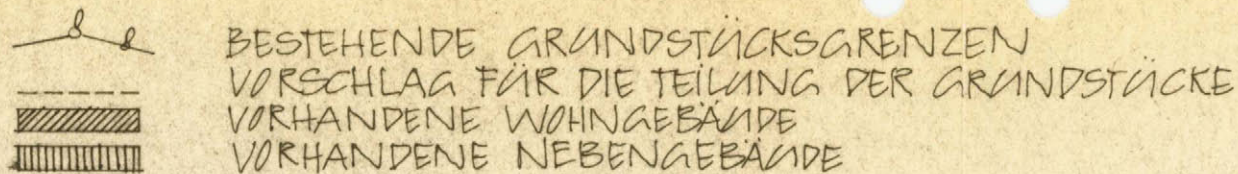 BESTEHENDE GRUNDSTÜCKSGRENZEN
VORSCHLAG FÜR DIE TEILUNG DER GRUNDSTÜCKE
VORHANDENE WOHNGEBÄUDE
VORHANDENE NEBENGEBÄUDE